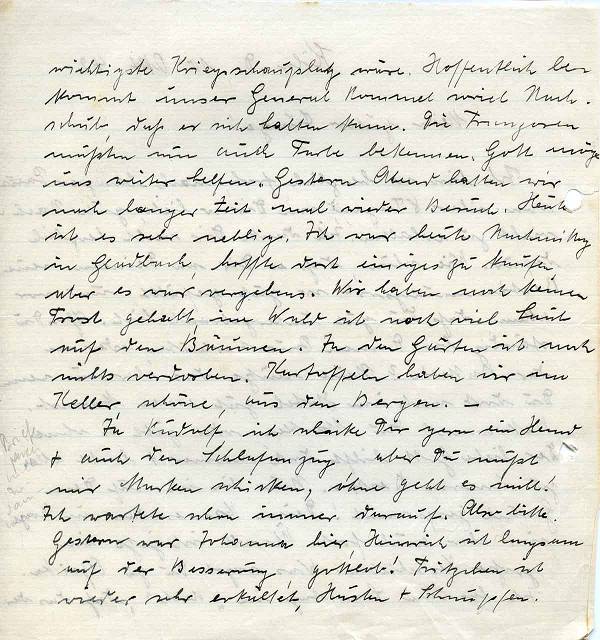 wichtigste Kriegsschauplatz wäre. Hoffentlich be-
kommt unser General Rommel viel Nach-
schub daß er sich halten kann. Die Franzosen
müßten nun auch Farbe bekennen. Gott möge
uns weiter helfen. Gestern Abend hatten wir
nach langer Zeit mal wieder Besuch. Heute
ist es sehr neblig. Ich war heute Nachmittag
in Gladbach, hoffte dort einiges zu kaufen
aber es war vergebens. Wir haben noch keinen
Frost gehabt, im Wald ist noch viel Laub
auf den Bäumen. In den Gärten ist noch
nichts verdorben. Kartoffeln haben wir im
Keller, schöne, aus den Bergen. —
Ja Rudolf, ich schicke Dir gern ein Hemd
+ auch den Schlafanzug aber Du mußt
mir Marken schicken, ohne geht es nicht!
Ich wartete schon immer darauf. Also bitte.
Gestern war Johanna hier, Heinrich ist langsam
auf der Besserung, gottlob! Fritzchen ist
wieder sehr erkältet, Husten + Schnupfen.